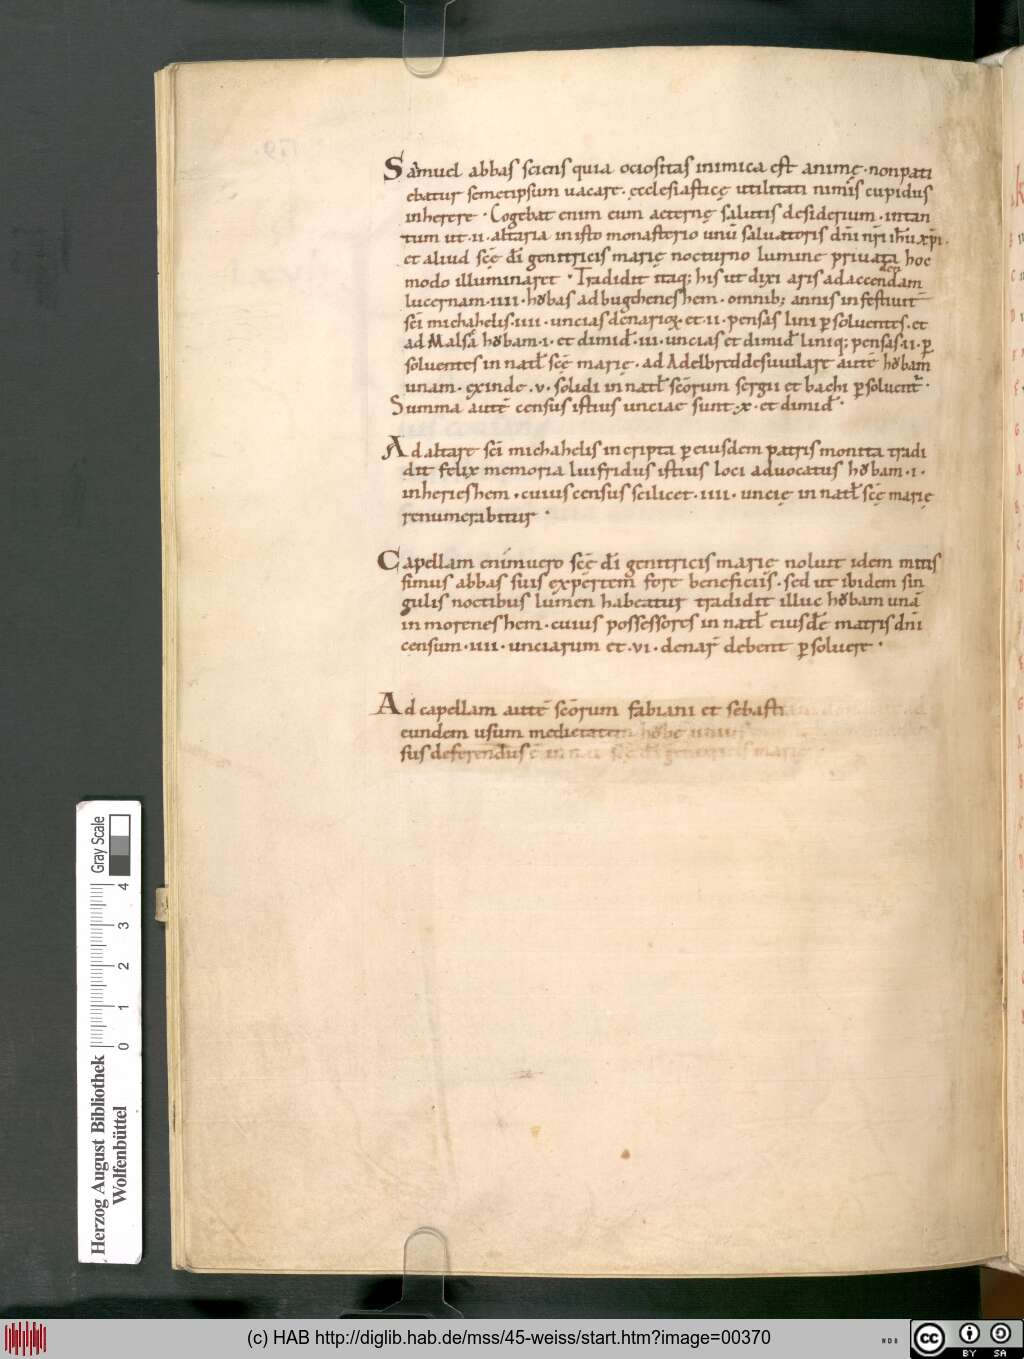 Samuel abbas sciens quia ociositas inimica est animę · non pati
ebatur semetipsum uacare · ęcclesiasticę utilitati nimis cupidus
inherere · Cogebat enim eum aeternę salutis desiderium · in tan
tum ut · ii · altaria in isto monasterio unū saluatoris dn̄i nr̄i ihu xp̄i ·
et aliud scę̄ dī genitricis marię nocturno lumine priuata hoc
modo illuminaret · Tradidit itaq; his ut dixi aris ad accendam
lucernam · iiii · hobas ad bugcheneshem · omnib; annis in festiuit
sc̄i michahelis · iiii · uncias denariorꝝ · et · ii · pensas lini ꝑsoluentes · et
ad Malsā hobam · i · et dimid · iii · uncias et dimid liniq; pensas · ii · ꝑ
soluentes in natł scę̄ marię · ad Adelbreddesuuilare autē hobam
unam · exinde · v · solidi in natł sc̄orum sergii et bachi ꝑsoluent ·
Summa autē census istius unciae sunt · x · et dimid ·
Ad altare sc̄i michahelis in cripta ꝑ eiusdem patris monita tradi
dit felix memoria luifridus istius loci aduocatus hobam · i ·
in herieshem · cuius census scilicet · iiii · uncię in natł scę̄ marię
renumerabitur ·
Capellam enimuero scę̄ dī genitricis marię noluit idem mitis
simus abbas suis expertem fore beneficiis · sed ut ibidem sin
gulis noctibus lumen habeatur tradidit illuc hobam unā
in moreneshem · cuius possessores in natł eiusdē matris dn̄i
censum · iiii · unciarum et · vi · denar debent ꝑsoluere ·
Ad capellam autē sc̄orum fabiani et sebasti
eundem usum medietatem hobę
sus deferendus ē in scę̄ dī genitricis marię
Herzog August Bibliothek
Wolfenbüttel
0 1 2 3 4
Gray Scale
(c) HAB http://diglib.hab.de/mss/45-weiss/start.htm?image=00370
cc
BY SA